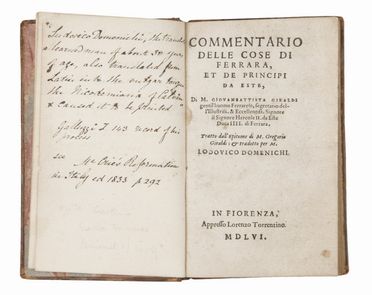 Ludovico Domenichi, the translator
a learned man of about 38 years
of age, also translated from
Latin into the vulgar tongue
the Nicodemiana of Calvin
& caused it to be printed
103 record of his
process
see
McCrie's Reformation
in Italy ed 1833 p 292
COMMENTARIO
DELLE COSE DI
FERRARA,
ET DE PRINCIPI
DA ESTE,
DI M. GIOVAMBATTISTA GIRALDI
gentilhuomo Ferrarese, Segretario del-
l'Illustriss. & Eccellentiss. Signore
il Signore Hercole II. da Este
Duca IIII. di Ferrara.
Tratto dall'epitome di M. Gregorio
Giraldi; & tradotto per M.
LODOVICO DOMENICHI.
IN FIORENZA,
Appresso Lorenzo Torrentino.
MDLVI.